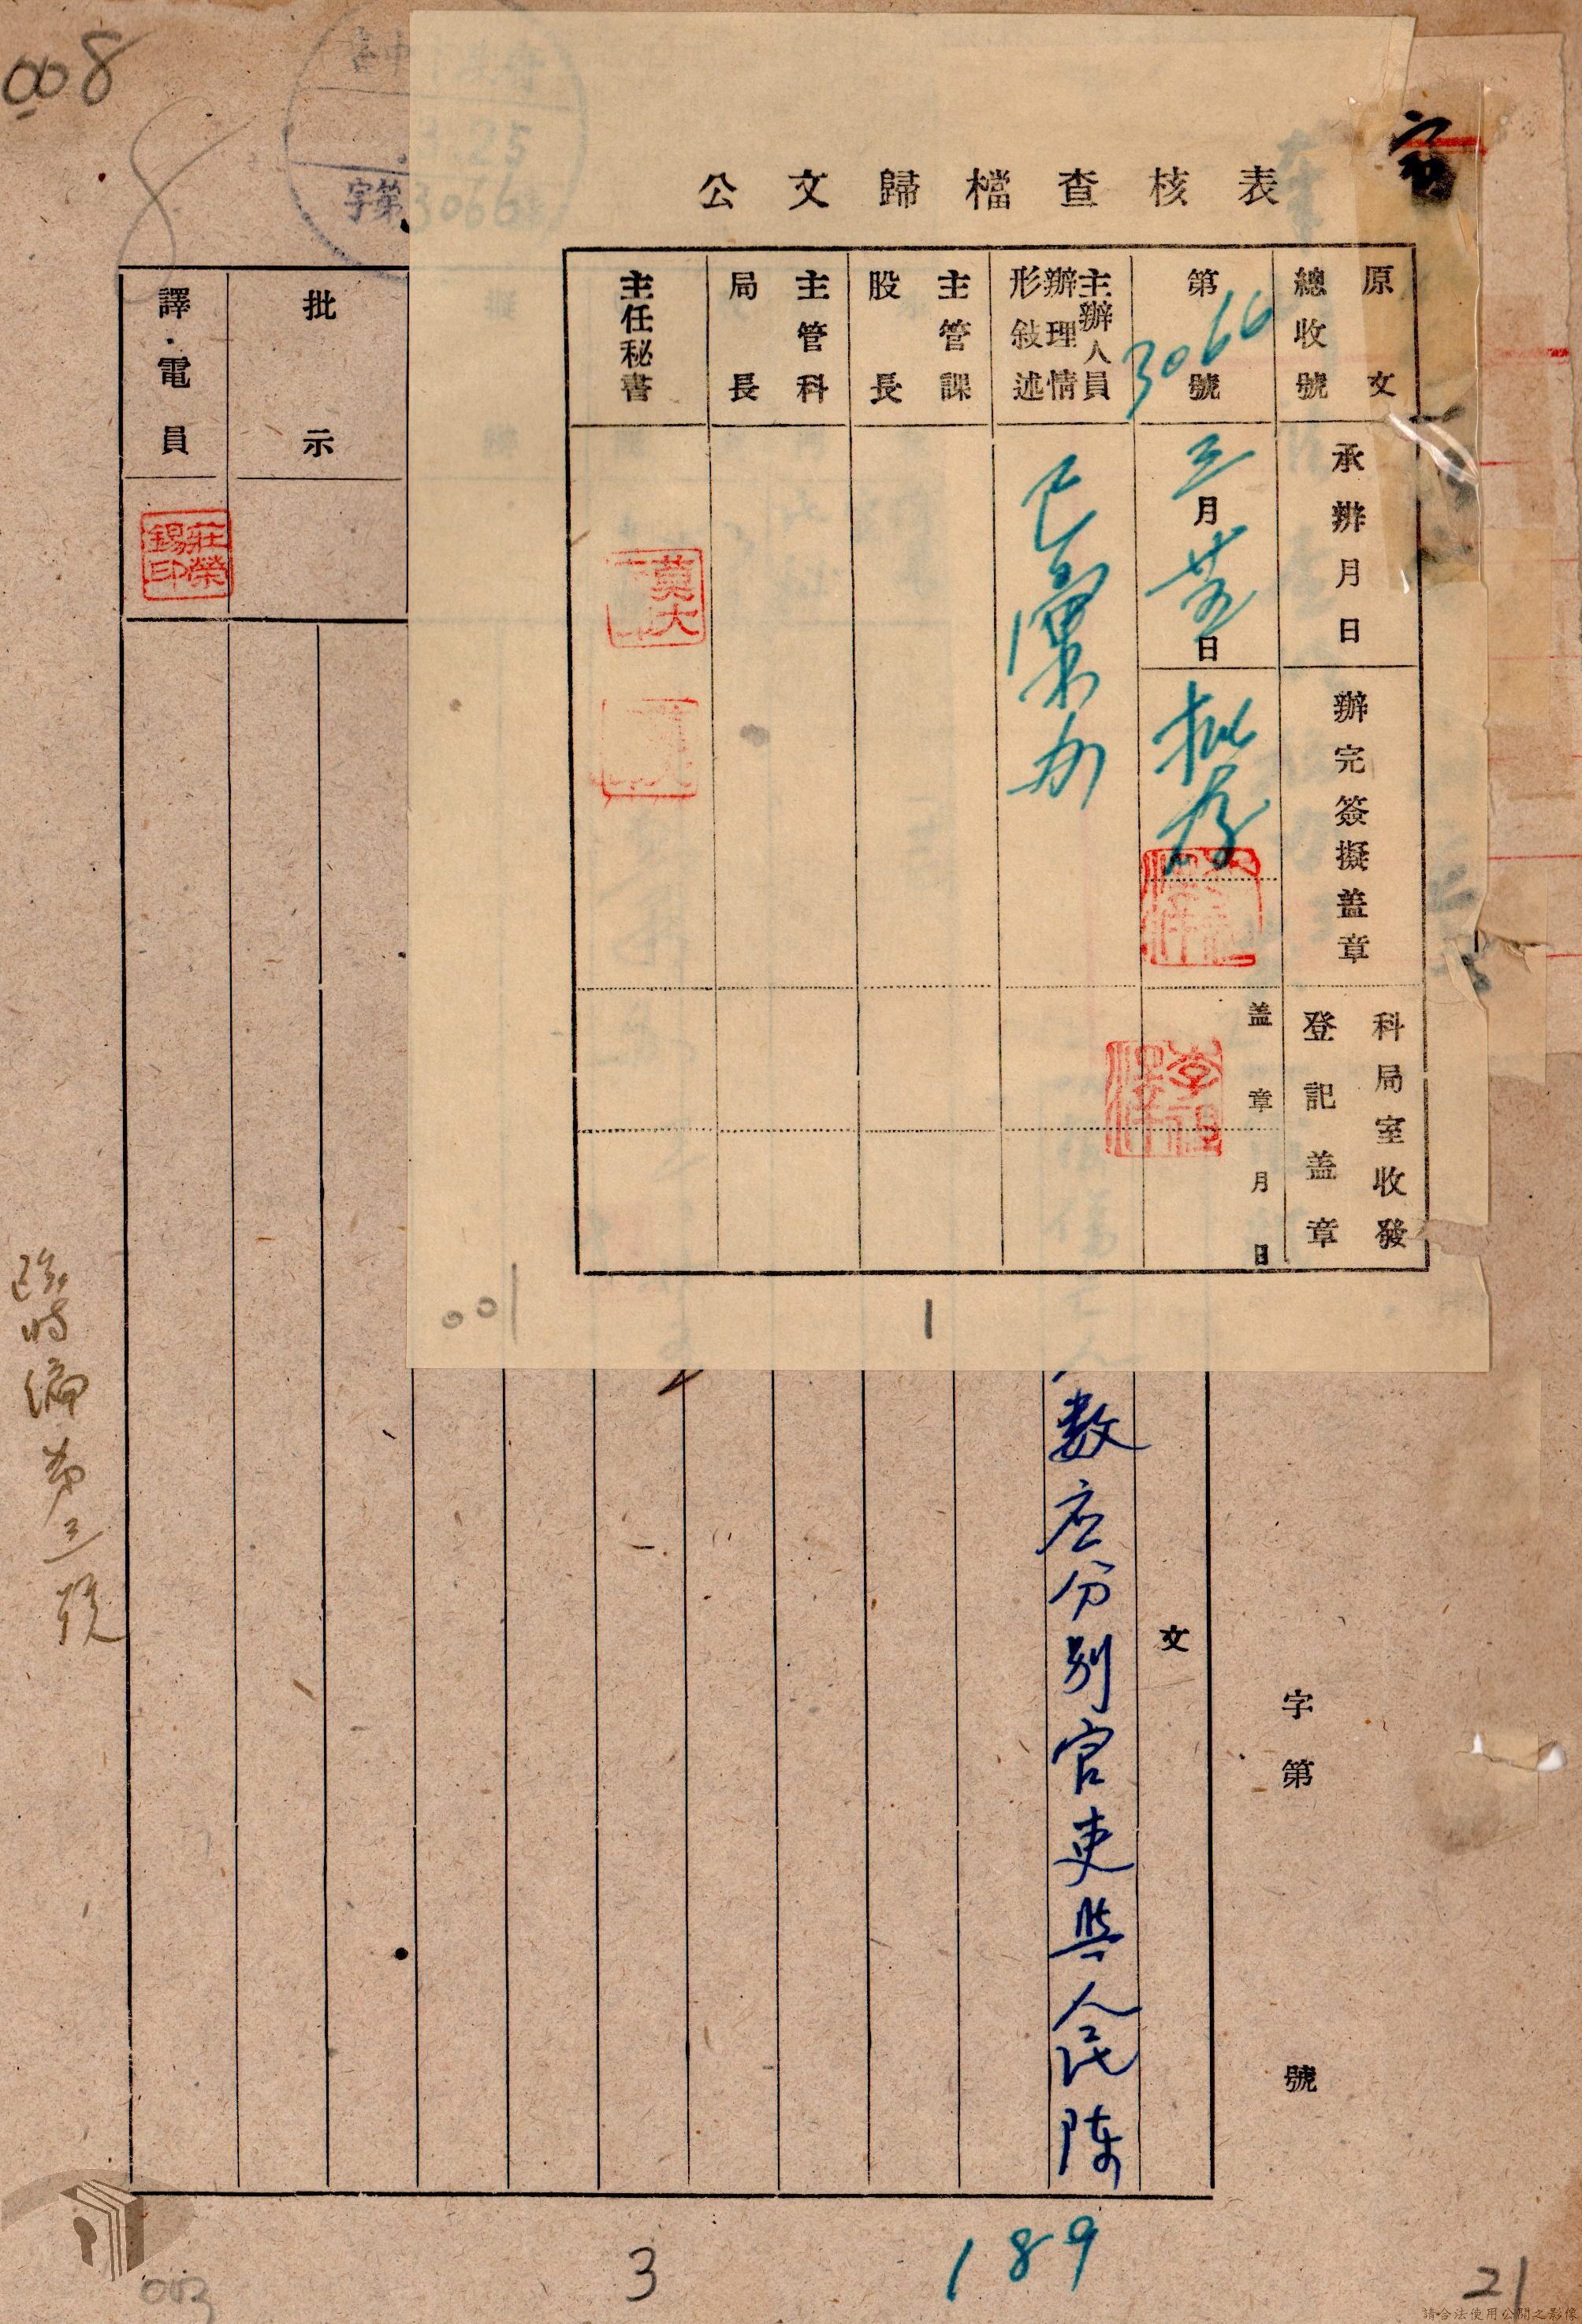 008
8
3.25
字第3066號
公文歸檔查核表
原文
總收號
第3066號
主辦人員
辦理情
形敍述
主管課
股長
主管科
局長
主任秘書
承辦月日
三月廿五日
已彙办
辦完簽擬蓋章
批存
科局室收發
登記蓋章
蓋章 月 日
001
1
批示
譯電員
莊榮錫印
文
字第 號
数应分别官吏與人民陣
臨時編第三號
3
189
21
003
請合法使用公開之影像